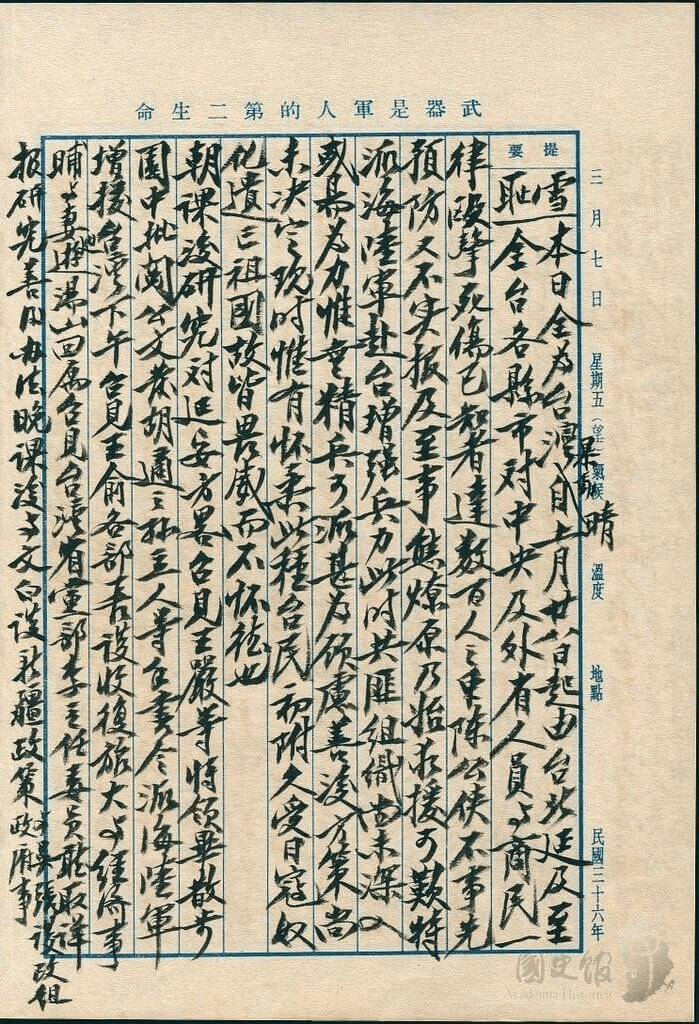 武器是軍人的第二生命
三月七日 星期五(望) 氣候 晴 溫度 地點 民國三十六年
提要
雪本日全為台灣暴動自上月廿八日起由台北延及至
恥全台各縣市對中央及外省人員與商民一
律毆擊死傷已知者達數百人之眾陳公俠不事先
預防又不实报及至事態燎原乃始求援可歎特
派海陸軍赴台增強兵力此时共匪組織尚未深入
或易為力惟無精兵可派甚為顧慮善後方策尚
未決定现时惟有怀柔此種台民初附久受日寇奴
化遺忘祖國故皆畏威而不怀德也
朝课後研究对延安方略召見王嚴等將領畢散步
園中批閱公文發胡適之孫立人等手書令派海陸軍
增援台湾下午召見王俞各部長談收復旅大与經濟事
晡与妻遊湯山回寓召見台湾省黨部李主任委員聽取詳
报研究善後办法晚课後与文白談新疆政策与吳張談改組政府事
國史館
Academia Historica